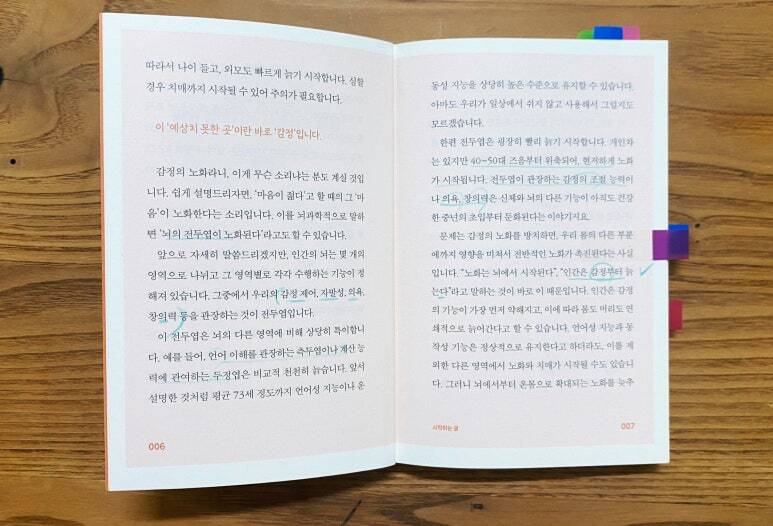 따라서 나이 들고, 외모도 빠르게 늙기 시작합니다. 심할
경우 치매까지 시작될 수 있어 주의가 필요합니다.
이 '예상치 못한 곳'이란 바로 '감정'입니다.
감정의 노화라니, 이게 무슨 소리냐는 분도 계실 것입
니다. 쉽게 설명드리자면, '마음이 젊다'고 할 때의 그 '마
음'이 노화한다는 소리입니다. 이를 뇌과학적으로 말하
면 '뇌의 전두엽이 노화된다'라고도 할 수 있습니다.
앞으로 자세히 말씀드리겠지만, 인간의 뇌는 몇 개의
영역으로 나뉘고 그 영역별로 각각 수행하는 기능이 정
해져 있습니다. 그중에서 우리의 감정 제어, 자발성, 의욕,
창의력 등을 관장하는 것이 전두엽입니다.
이 전두엽은 뇌의 다른 영역에 비해 상당히 특이합니
다. 예를 들어, 언어 이해를 관장하는 측두엽이나 계산 능
력에 관여하는 두정엽은 비교적 천천히 늙습니다. 앞서
설명한 것처럼 평균 73세 정도까지 언어성 지능이나 운
006
동성 지능을 상당히 높은 수준으로 유지할 수 있습니다.
아마도 우리가 일상에서 쉬지 않고 사용해서 그럴지도
모르겠습니다.
한편 전두엽은 굉장히 빨리 늙기 시작합니다. 개인차
는 있지만 40~50대 즈음부터 위축되어, 현저하게 노화
가 시작됩니다. 전두엽이 관장하는 감정의 조절 능력이
나 의욕, 창의력은 신체와 뇌의 다른 기능이 아직도 건강
한 중년의 초입부터 둔화된다는 이야기지요.
문제는 감정의 노화를 방치하면, 우리 몸의 다른 부분
에까지 영향을 미쳐서 전반적인 노화가 촉진된다는 사실
입니다. "노화는 뇌에서 시작된다", "인간은 감정부터 늙
는다"라고 말하는 것이 바로 이 때문입니다. 인간은 감정
의 기능이 가장 먼저 약해지고, 이에 따라 몸도 머리도 연
쇄적으로 늙어간다고 할 수 있습니다. 언어성 지능과 동
작성 기능은 정상적으로 유지한다고 하더라도, 이를 제
외한 다른 영역에서 노화와 치매가 시작될 수도 있습니
다. 그러니 뇌에서부터 온몸으로 확대되는 노화를 늦추
시작하는 글
007